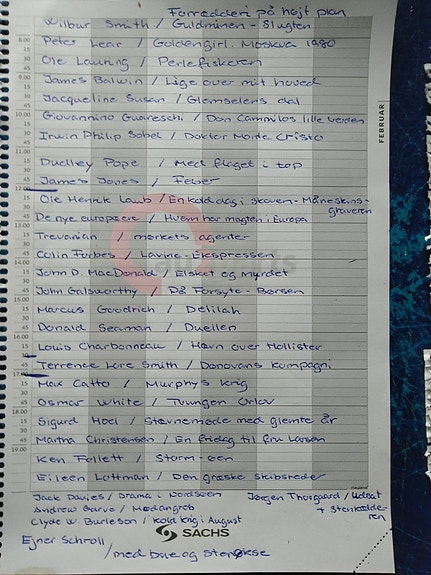 Forrædderi på højt plan
Wilbur Smith / Guldminen - Slugten
Peter Lear / Goldengirl, Moskva 1980
Ole Lauring / Perlefiskeren
James Balwin / Lige over mit hoved
Jacqueline Susan / Glemselens dal
Giovannino Guareschi / Don Camillos lille verden
Irwin Philip Sobel / Doktor Monte Cristo
Dudley Pope / Med flaget i top
James Jones / Feber
Ole Henrik Laub / En kold dag i skoven - Måneskins-
graveren
De nye europæere / Hvem har magten i Europa
Trevanian / mørkets agenter
Colin Forbes / Lavine-Ekspressen
John D. MacDonald / Elsket og Myrdet
John Galsworthy / På Forsyte-Børsen
Marcus Goodrich / Delilah
Donald Seaman / Duellen
Louis Charbonneau / Hævn over Hollister
Terrence Lore Smith / Donovans kompagni
Max Catto / Murphy's krig
Osmar White / Tvungen Orlov
Sigurd Hoel / Stævnemøde med glemte år
Martha Christensen / En fridag til fru Larsen
Ken Follett / Storm-øen
Eileen Lottman / Den græske skibsreder
Jack Davies / Drama i Nordsøen
Jørgen Thorgaard / Udsat
+ Stenkælde-
ren
Andrew Garve / Modangreb
Clyde W. Burleson / kold krig i August
SACHS
Ejner Schroll
/ med bue og stenøkse
FEBRUAR